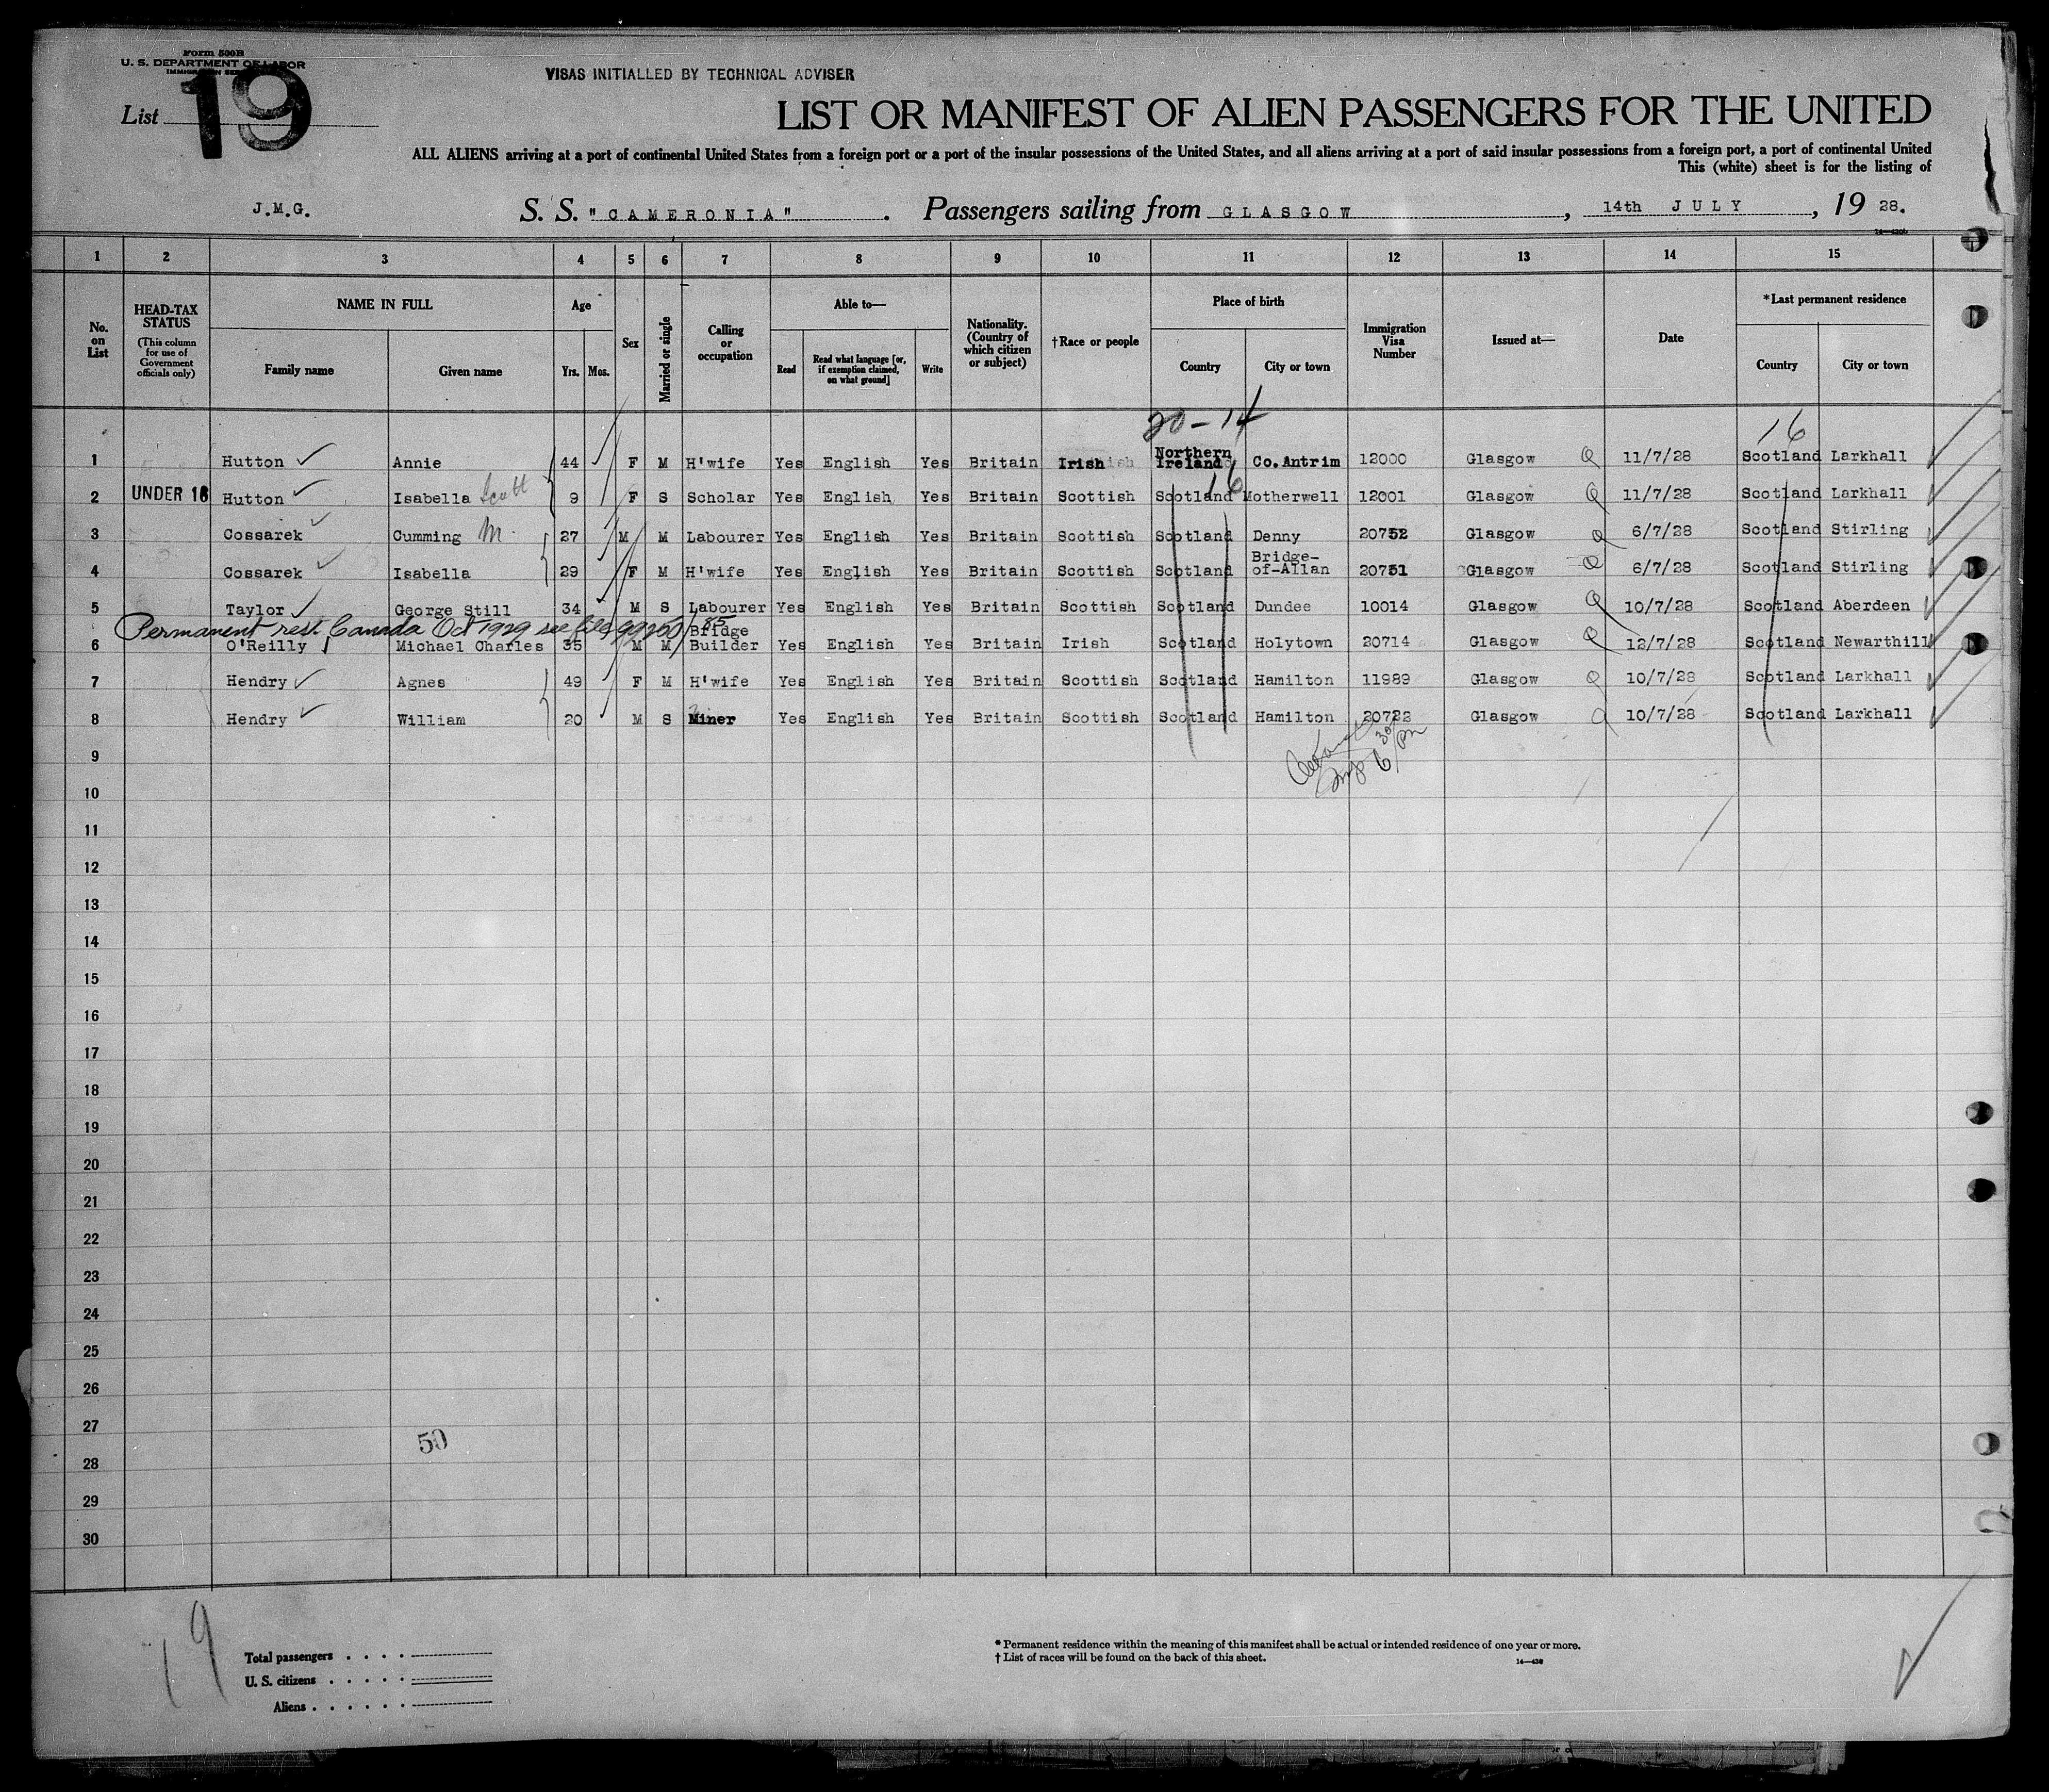 Form 500B
U. S. DEPARTMENT OF LABOR
VISAS INITIALLED BY TECHNICAL ADVISER
List 19
LIST OR MANIFEST OF ALIEN PASSENGERS FOR THE UNITED
ALL ALIENS arriving at a port of continental United States from a foreign port or a port of the insular possessions of the United States, and all aliens arriving at a port of said insular possessions from a foreign port, a port of continental United
This (white) sheet is for the listing of
J.M.G. S. S. "CAMERONIA" . Passengers sailing from GLASGOW , 14th JULY , 19 28.
1 2 3 4 5 6 7 8 9 10 11 12 13 14 15
No. on List
HEAD-TAX STATUS (This column for use of Government officials only)
NAME IN FULL
Family name Given name
Age
Yrs. Mos.
Sex
Married or single
Calling or occupation
Able to—
Read
Read what language [or, if exemption claimed, on what ground]
Write
Nationality. (Country of which citizen or subject)
†Race or people
Place of birth
Country City or town
Immigration Visa Number
Issued at—
Date
*Last permanent residence
Country City or town
20-14 16
1 Hutton Annie 44 F M H'wife Yes English Yes Britain Irish Northern Ireland Co. Antrim 12000 Glasgow 11/7/28 Scotland Larkhall
16
2 UNDER 16 Hutton Isabella Scott 9 F S Scholar Yes English Yes Britain Scottish Scotland Motherwell 12001 Glasgow 11/7/28 Scotland Larkhall
3 Cossarek Cumming M. 27 M M Labourer Yes English Yes Britain Scottish Scotland Denny 20752 Glasgow 6/7/28 Scotland Stirling
4 Cossarek Isabella 29 F M H'wife Yes English Yes Britain Scottish Scotland Bridge-of-Allan 20751 Glasgow 6/7/28 Scotland Stirling
5 Taylor George Still 34 M S Labourer Yes English Yes Britain Scottish Scotland Dundee 10014 Glasgow 10/7/28 Scotland Aberdeen
Permanent rest. Canada Oct 1929 see file 99250/85
6 O'Reilly Michael Charles 35 M M Bridge Builder Yes English Yes Britain Irish Scotland Holytown 20714 Glasgow 12/7/28 Scotland Newarthill
7 Hendry Agnes 49 F M H'wife Yes English Yes Britain Scottish Scotland Hamilton 11989 Glasgow 10/7/28 Scotland Larkhall
8 Hendry William 20 M S Miner Yes English Yes Britain Scottish Scotland Hamilton 20722 Glasgow 10/7/28 Scotland Larkhall
9
10
11
12
13
14
15
16
17
18
19
20
21
22
23
24
25
26
27
50
28
29
30
19
Total passengers
U. S. citizens
Aliens
* Permanent residence within the meaning of this manifest shall be actual or intended residence of one year or more.
† List of races will be found on the back of this sheet.
14—430